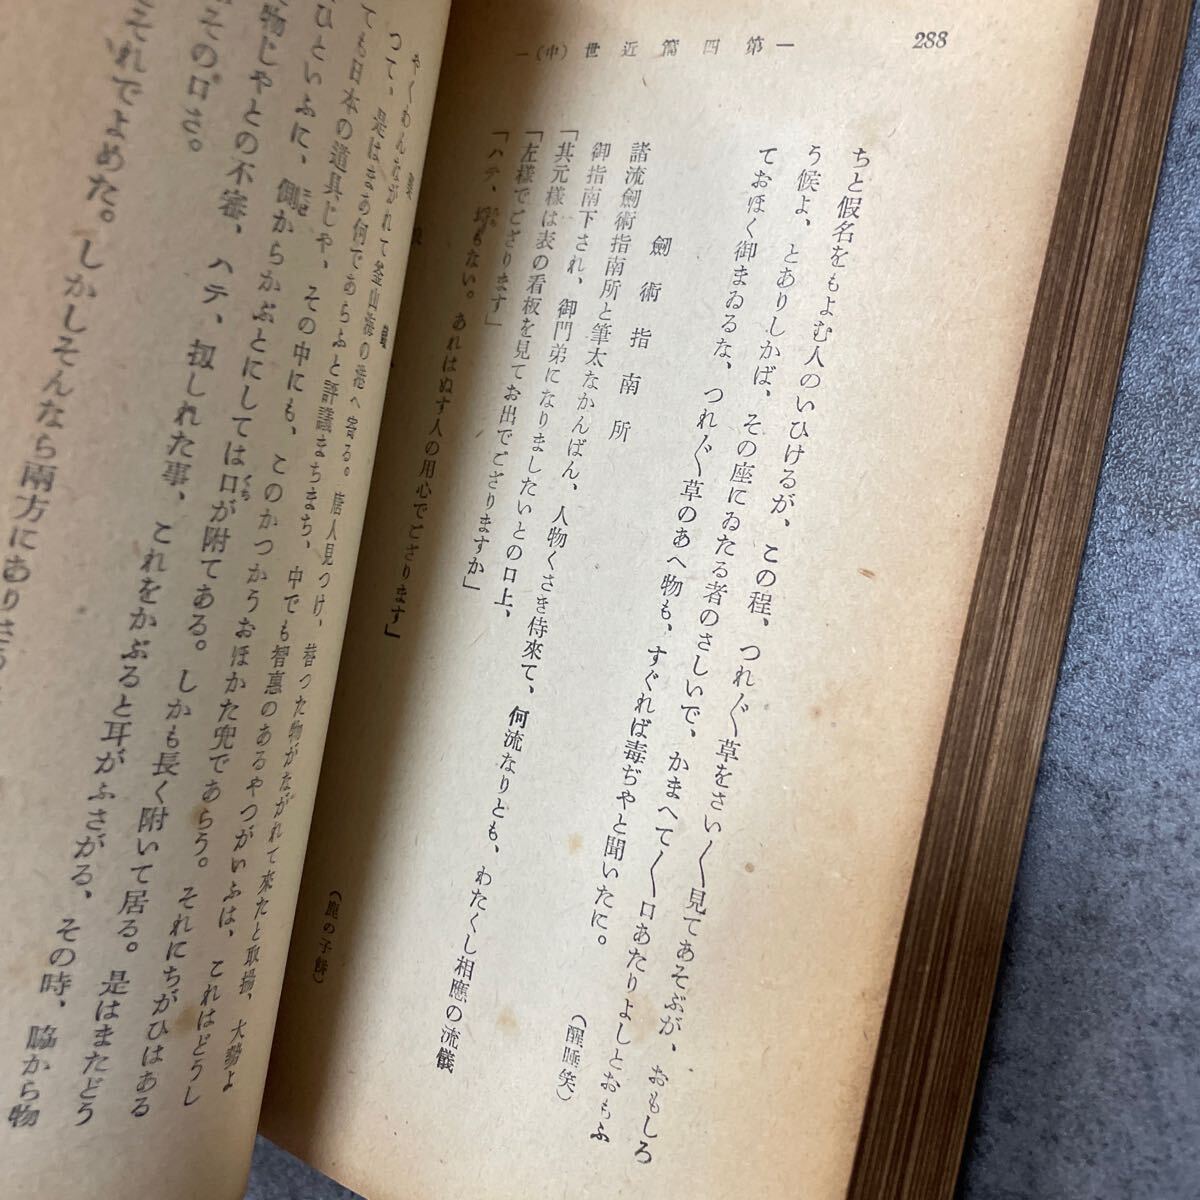 288
一 第四篇近世(中) 一
ちと假名をもよむ人のいひけるが、この程、つれ〴〵草をさい〳〵見てあそぶが、おもしろ
う候よ、とありしかば、その座にゐたる者のさしいで、かまへて〳〵口あたりよしとおもふ
ておほく御まゐるな、つれ〴〵草のあへ物も、すぐれば毒ぢやと聞いたに。
(醒睡笑)
劍術指南所
諸流劍術指南所と筆太なかんばん、人物くさき侍來て、何流なりとも、わたくし相應の流儀
御指南下され、御門弟になりましたいとの口上、
「其元様は表の看板を見てお出でござりますか」
「左様でござります」
「ハテ、埒もない。あれはぬす人の用心でござります」
(鹿の子餅)
やくわんながれて釜山海の港へ寄る。唐人見つけ、替つた物がながれて来たと取揚、大勢よ
つて、是はまあ何であらふと評議まちまち、中でも智惠のあるやつがいふは、これはどうし
ても日本の道具じゃ、その中にも、このかつかうおほかた兜であらう。それにちがひはある
ひといふに、側からかぶとにしては口が附てある。しかも長く附いて居る。是はまたどう
物じやとの不審、ハテ、扨しれた事、これをかぶると耳がふさがる、その時、脇から物
そのロさ。
それでよめた。しかしそんなら兩方にありさう